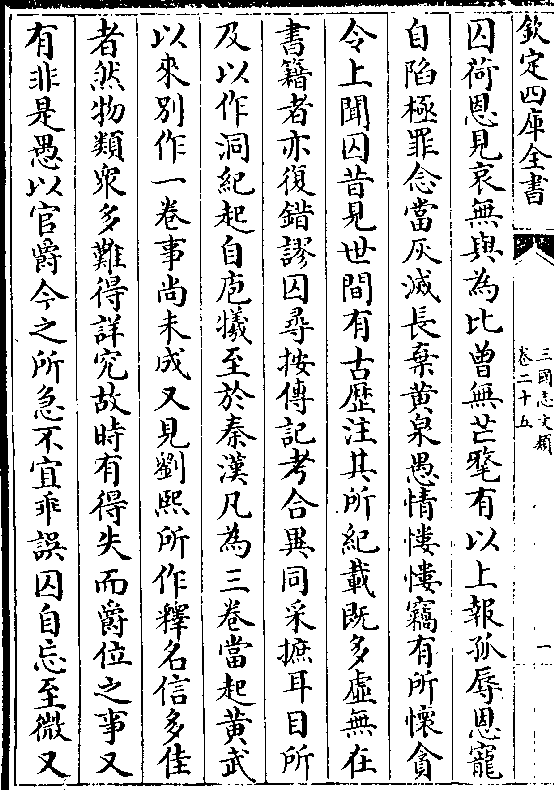 欽定四庫全書
三國志文類
卷二十五
一
囚荷恩見哀無與為比曽無芒氂有以上報孤辱恩寵
自陷極罪念當灰滅長棄黄泉愚情慺慺竊有所懷貪
令上聞囚昔見世間有古歴注其所紀載既多虛無在
書籍者亦復錯謬囚尋按傳記考合異同采摭耳目所
及以作洞紀起自庖犧至於秦漢凡為三卷當起黄武
以來别作一卷事尚未成又見劉熙所作釋名信多佳
者然物類衆多難得詳究故時有得失而爵位之事又
有非是愚以官爵今之所急不宜乖誤囚自忘至微又